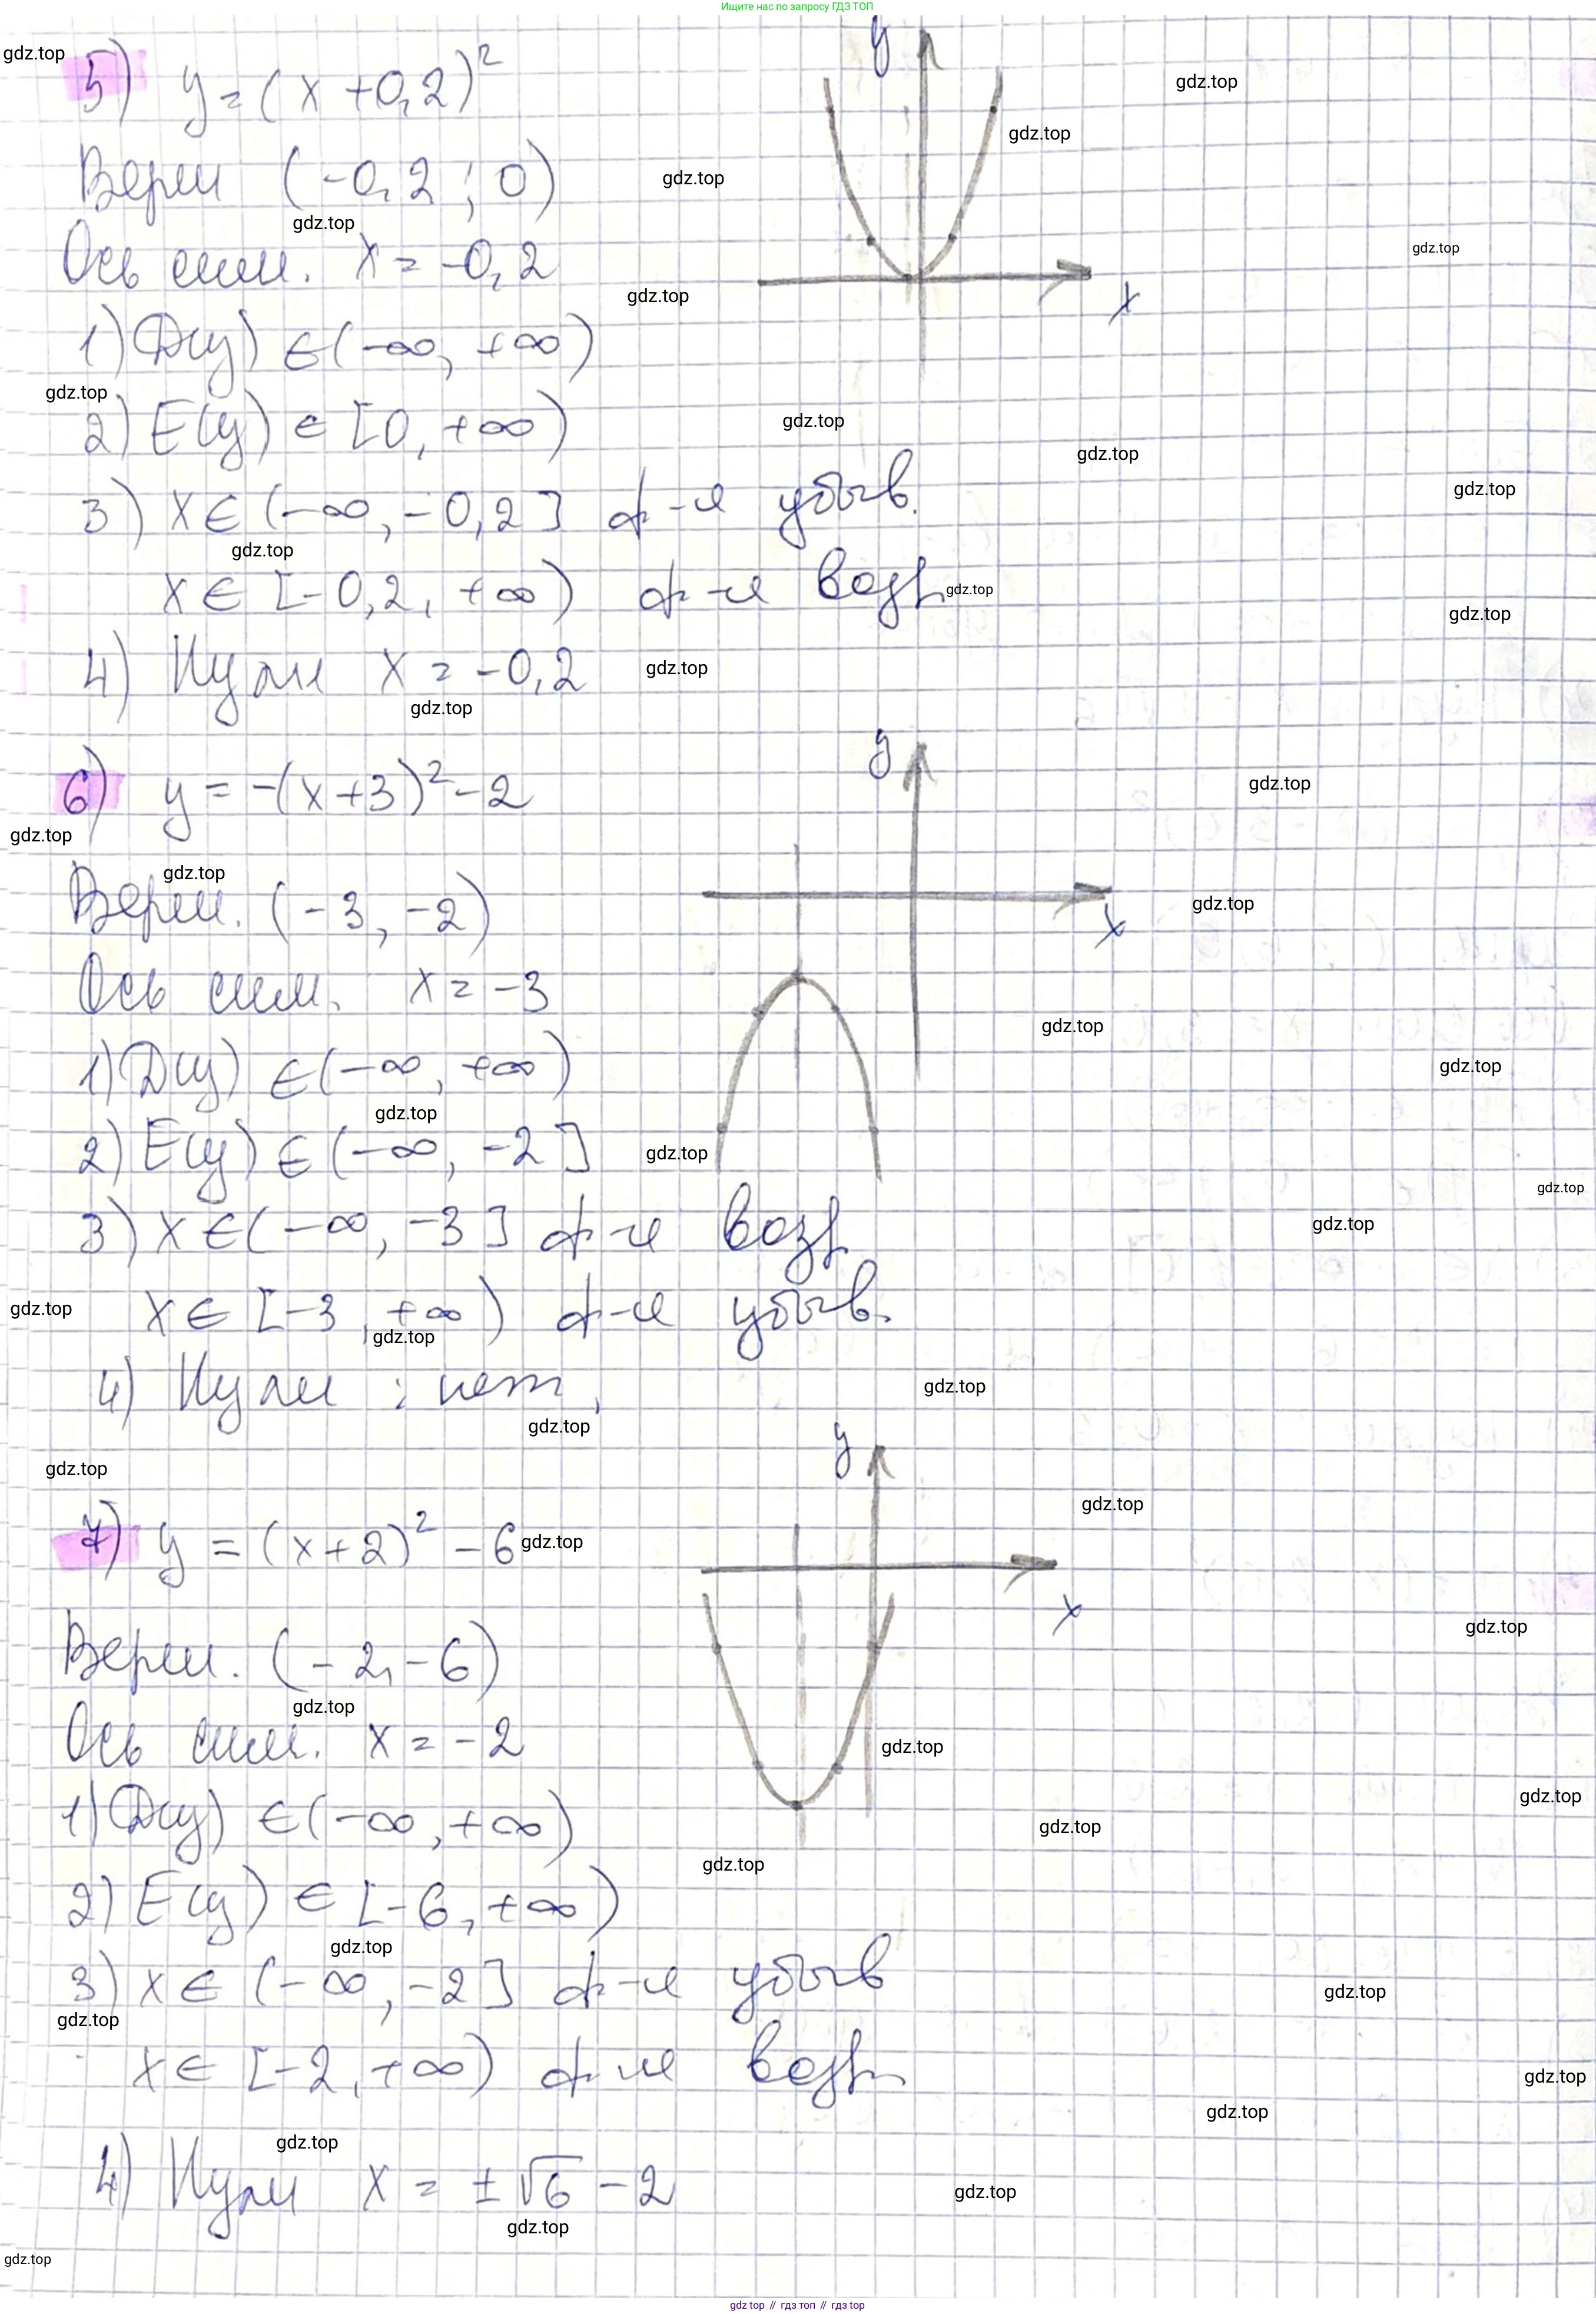 Ищите нас по запросу ГДЗ ТОП
5) y = (x + 0,2)²
Верш (-0,2 ; 0)
Ось сим. x = -0,2
1) D(y) ∈ (-∞, +∞)
2) E(y) ∈ [0, +∞)
3) x ∈ (-∞, -0,2] ф-я убыв.
x ∈ [-0,2, +∞) ф-я возр
4) Нули x = -0,2
y
x
6) y = -(x+3)² - 2
Верш. (-3, -2)
Ось сим. x = -3
1) D(y) ∈ (-∞, +∞)
2) E(y) ∈ (-∞, -2]
3) x ∈ (-∞, -3] ф-я возр
x ∈ [-3, +∞) ф-я убыв.
4) Нули : нет,
y
x
7) y = (x+2)² - 6
Верш. (-2, -6)
Ось сим. x = -2
1) D(y) ∈ (-∞, +∞)
2) E(y) ∈ [-6, +∞)
3) x ∈ (-∞, -2] ф-я убыв
x ∈ [-2, +∞) ф-я возр.
4) Нули x = ±√6 - 2
y
x
gdz.top
gdz top // гдз топ // гдз top